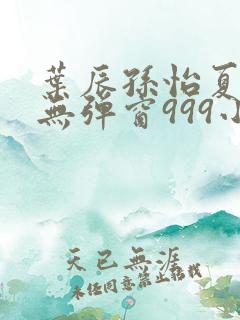 葉辰孫怡夏
無彈窗999小
天已無涯
未經同意禁止轉載